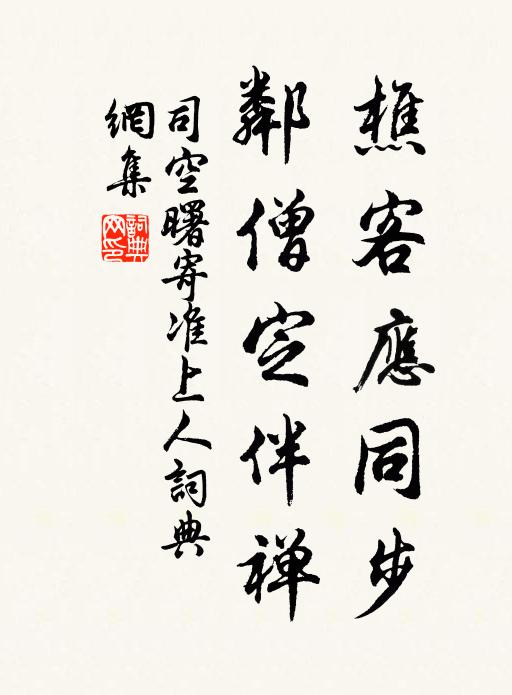 樵客應同步
鄰僧定伴禅
司空曙寄准上人詞典
網集
詞典網印